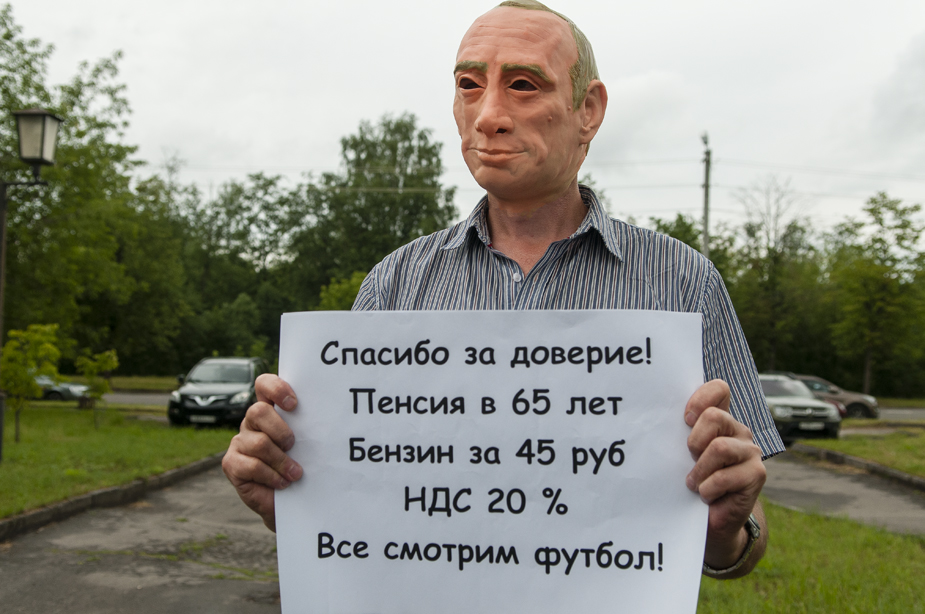 Спасибо за доверие!
Пенсия в 65 лет
Бензин за 45 руб
НДС 20 %
Все смотрим футбол!